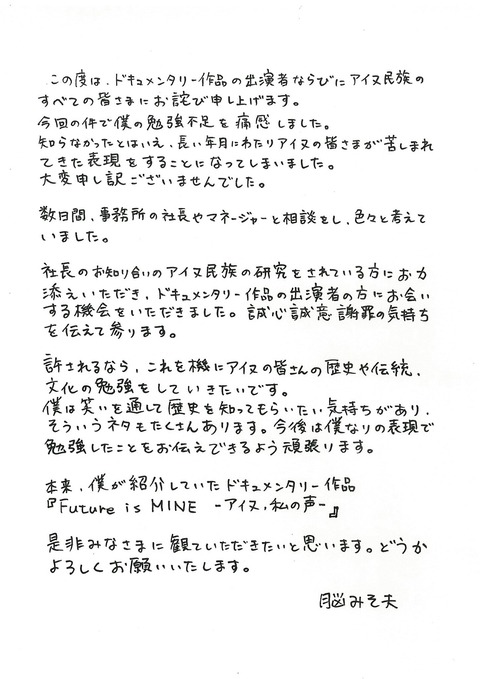 この度は、ドキュメンタリー作品の出演者ならびにアイヌ民族の
すべての皆さまにお詫び申し上げます。
今回の件で僕の勉強不足を痛感しました。
知らなかったとはいえ、長い年月にわたりアイヌの皆さまが苦しまれ
てきた表現をすることになってしまいました。
大変申し訳ございませんでした。
数日間、事務所の社長やマネージャーと相談をし、色々と考えて
いました。
社長のお知り合いのアイヌ民族の研究をされている方にお力
添えいただき、ドキュメンタリー作品の出演者の方にお会い
する機会をいただきました。誠心誠意謝罪の気持ち
を伝えて参ります。
許されるなら、これを機にアイヌの皆さんの歴史や伝統、
文化の勉強をしていきたいです。
僕は笑いを通して歴史を知ってもらいたい気持ちがあり、
そういうネタもたくさんあります。今後は僕なりの表現で
勉強したことをお伝えできるよう頑張ります。
本来、僕が紹介していたドキュメンタリー作品
『Future is MINE -アイヌ、私の声-』
是非みなさまに観ていただきたいと思います。どうか
よろしくお願いいたします。
脳みそ夫